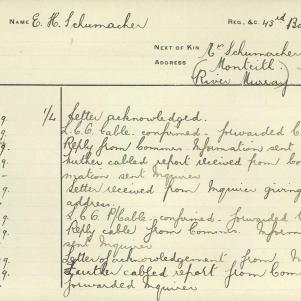 NAME E. H. Schumacher REG. &C. 43rd Ba
NEXT OF KIN Mr Schumacher
ADDRESS (Monteith
River Murray)
g 1/4 Letter acknowledged.
g. L.C.C. Cable. confirmed - forwarded C
g. Reply from Commrs. Information sent
g. Further cabled report received from Com
mation sent Inquirer
g. Letter received from Inquirer giving
address.
g. L.C.C. P/Cable - confirmed - forwarded
g. Reply cable from Commrs. Inform
sent Inquirer
g. Letter of acknowledgement from In
g. Further cabled report from Com
forwarded Inquirer